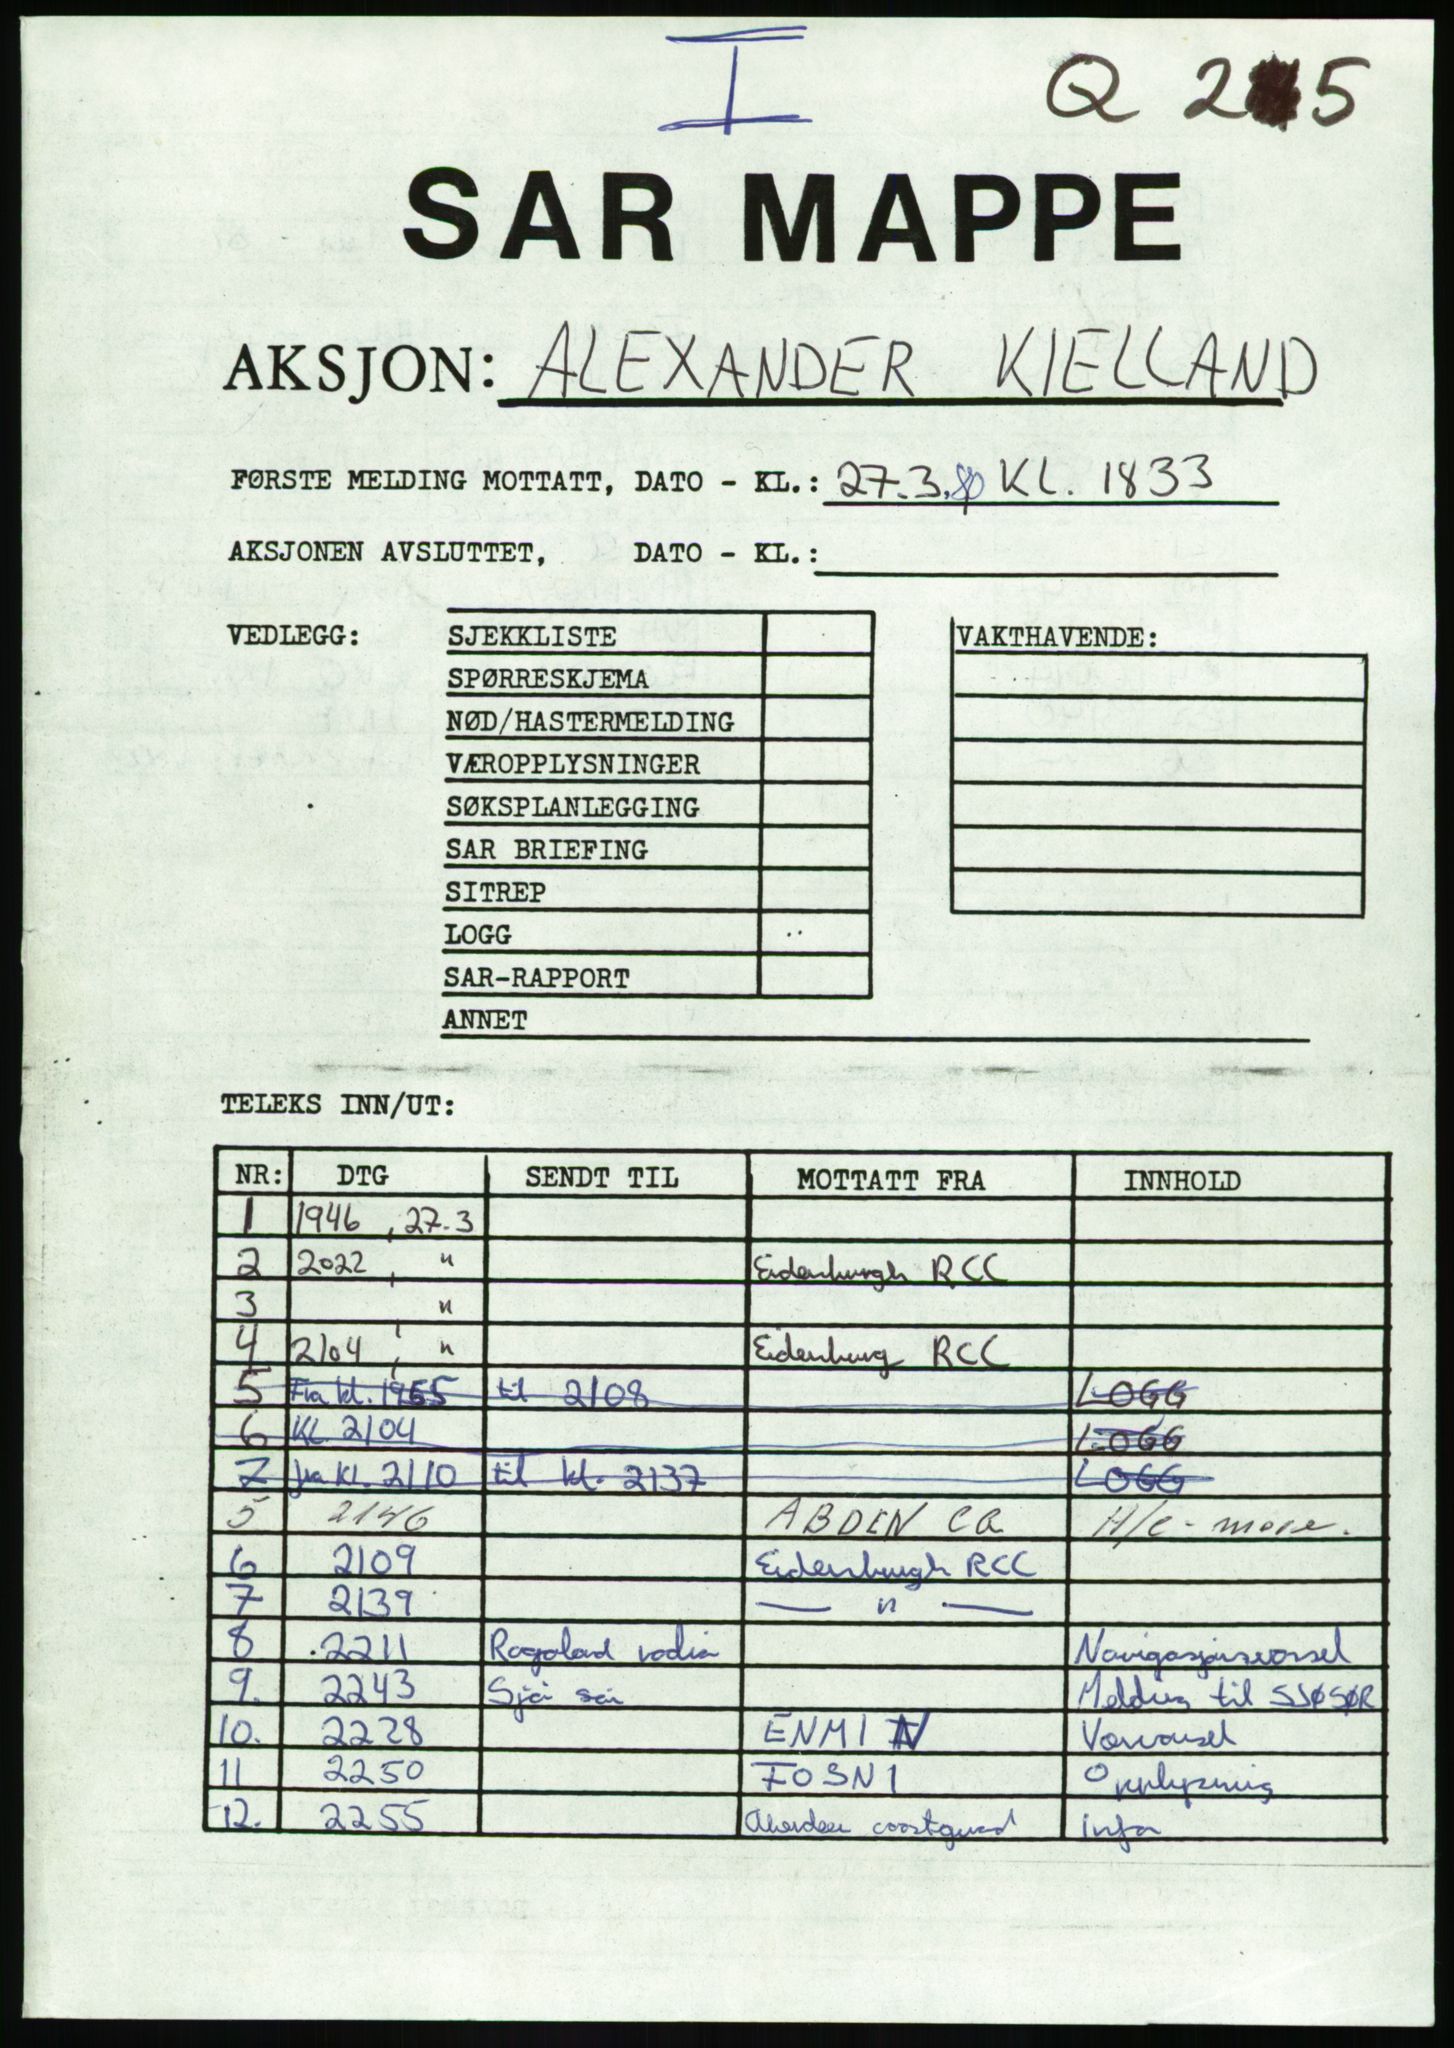 I
Q 2 5
SAR MAPPE
AKSJON: ALEXANDER KIELLAND
FØRSTE MELDING MOTTATT, DATO - KL.: 27.3.80 KL. 1833
AKSJONEN AVSLUTTET, DATO - KL.:
VEDLEGG: SJEKKLISTE VAKTHAVENDE:
SPØRRESKJEMA
NØD/HASTERMELDING
VÆROPPLYSNINGER
SØKSPLANLEGGING
SAR BRIEFING
SITREP
LOGG
SAR-RAPPORT
ANNET
TELEKS INN/UT:
NR: DTG SENDT TIL MOTTATT FRA INNHOLD
1 1946, 27.3
2 2022, " Eidenburgh RCC
3 "
4 2104, " Eidenburg RCC
5 Fra kl. 1955 til 2108 LOGG
6 KL 2104 LOGG
7 fra kl. 2110 til kl. 2137 LOGG
5 2146 ABDEN CG H/C - move.
6 2109 Eidenburgh RCC
7 2139 — " —
8 .2211 Rogaland radio Navigasjonsvarsel
9. 2243 Sjø sør Melding til SJØSØR
10. 2228 ENMI Værvarsel
11 2250 FOSN1 Opplysning
12. 2255 Aberdeen coastguard info